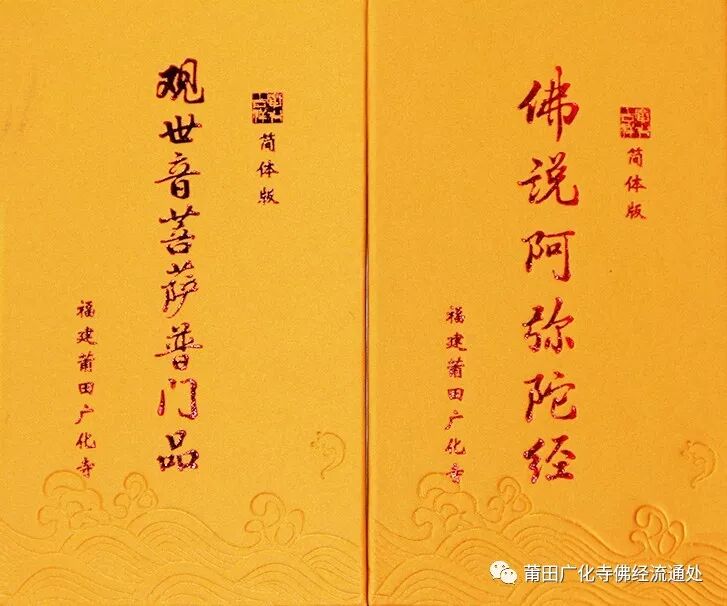 观世音菩萨普门品
简体版
福建莆田广化寺
佛说阿弥陀经
简体版
福建莆田广化寺
莆田广化寺佛经流通处